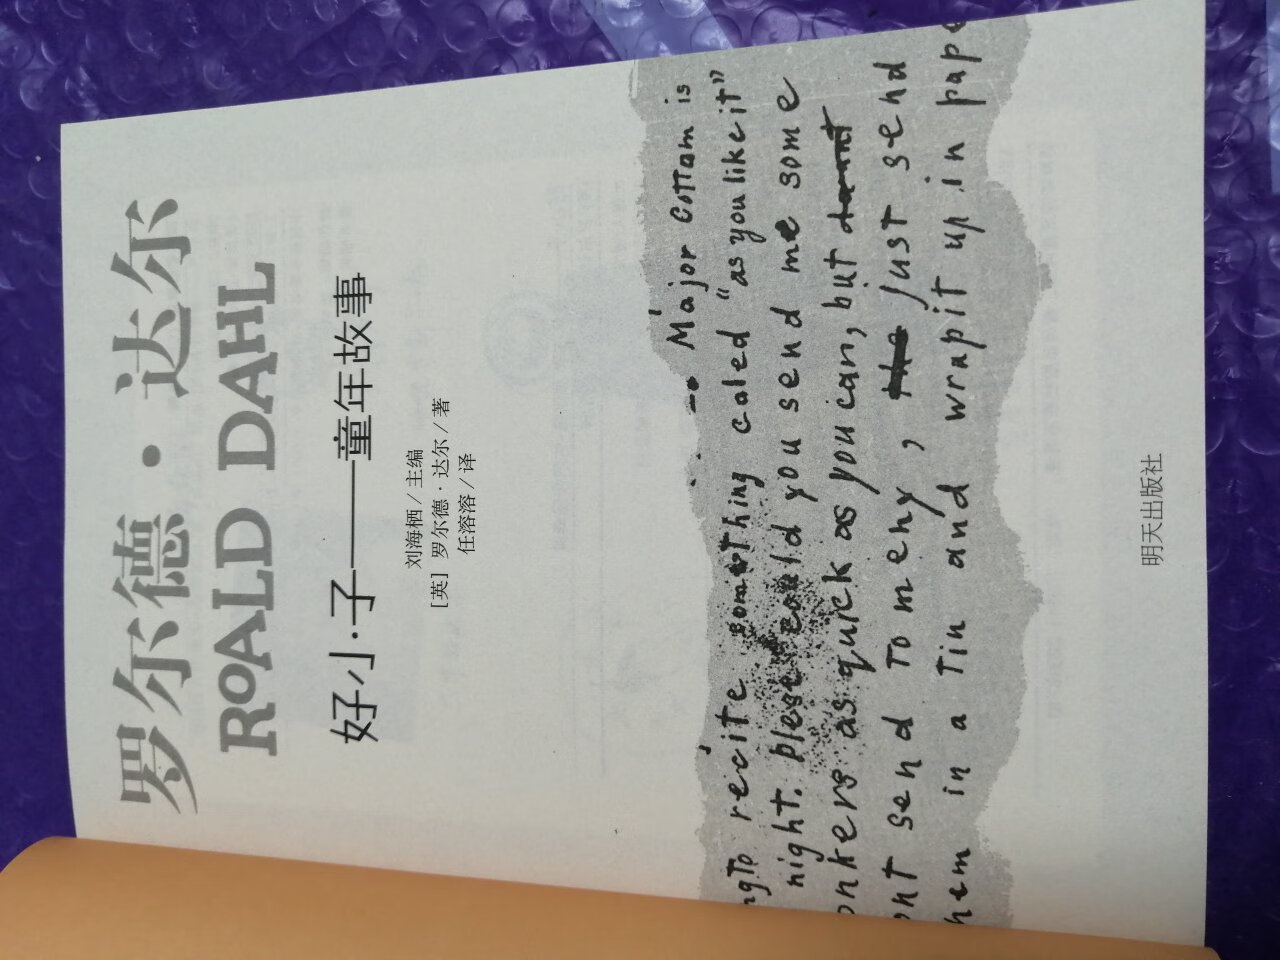 罗尔德·达尔
ROALD DAHL
好小子——童年故事
刘海栖/主编
[英] 罗尔德·达尔/著
任溶溶/译
Major Cottam is
ngto recite something caled "as you like it"
night. plese could you send me some
onkers as quick as you can, but
ont send to meny, just send
hem in a Tin and wrapit up in pape
明天出版社